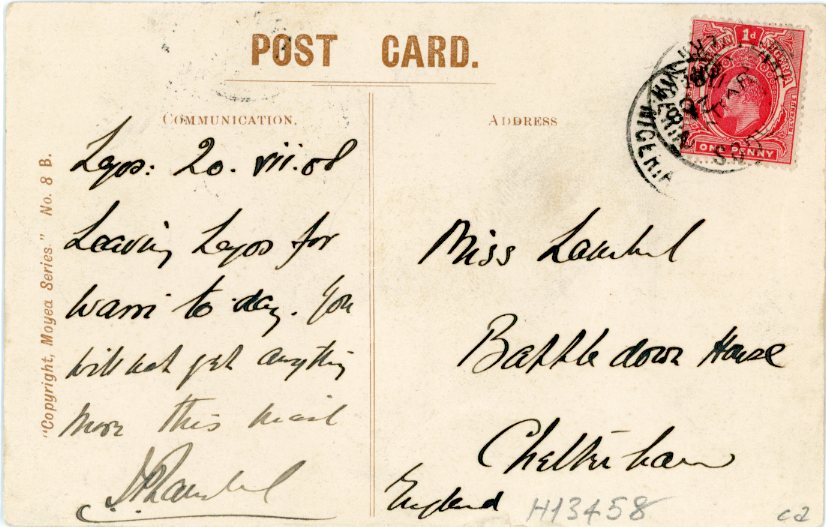 POST CARD.
COMMUNICATION.
ADDRESS
"Copyright, Moyea Series" No. 8 B.
Lagos: 20. vii. 08
Leaving Lagos for
Warri to day. You
will not get anything
more this mail
Miss
Battledown House
Cheltenham
England
1d
ONE PENNY
NIGERIA
H13458
c2